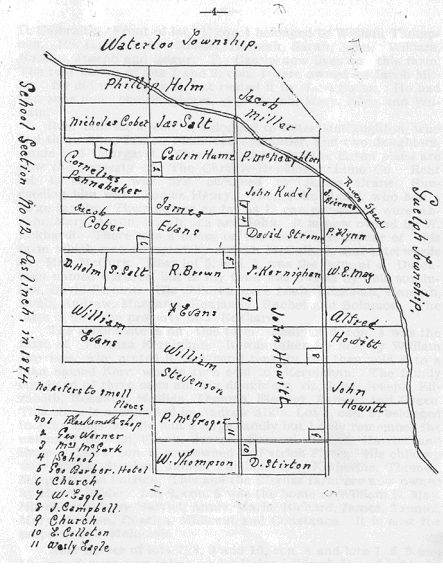 —4—
Waterloo Township.
Phillip Holm
Jacob
Miller
Nicholas Cober
Jas Salt
1
Cornelius
Pannabaker
Gavin Hume
2
P. McNaughton
John Kudel
J. Birner
River Speed
Guelph Township,
School Section No 12. Puslinch, in 1874
Jacob
Cober
James
Evans
3
4
David Strome
P. Flynn
6
5
D. Holm
S. Salt
R. Brown
J. Kernighan
W. E. May
William
Evans
J Evans
7
John Howitt
Alfred
Howitt
8
William
Stevenson
John
Howitt
P. McGregor
11
9
10
W. Thompson
D. Stirton
No refers to small
Places
No 1 Blacksmith shop
2 Geo Werner
3 Mrs McGurk
4 School
5 Geo Barber, Hotel
6 Church
7 W. Eagle
8 J. Campbell.
9 Church
10 E. Colloton
11 Wesly Eagle